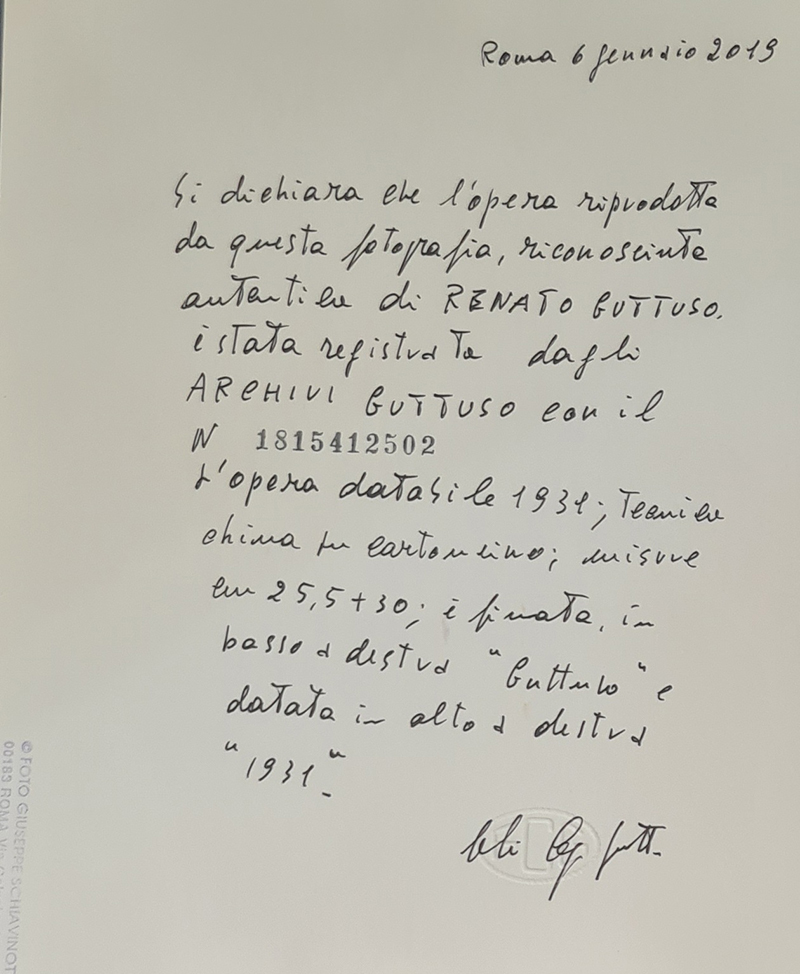 Roma 6 gennaio 2019
Si dichiara che l'opera riprodotta
da questa fotografia, riconosciuta
autentica di RENATO GUTTUSO.
è stata registrata dagli
ARCHIVI GUTTUSO con il
N 1815412502
L'opera databile 1931; Tecnica
china su cartoncino; misure
cm 25,5+30; è firmata, in
basso a destra "Guttuso" e
datata in alto a destra
"1931".
© FOTO GIUSEPPE SCHIAVINOT
00183 ROMA